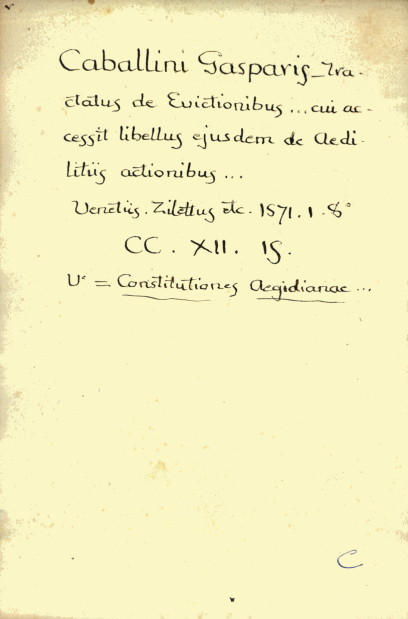 Caballini Gasparis_Tra-
ctatus de Evictionibus ... cui ac-
cessit libellus ejusdem de Aedi-
litiis actionibus ...
Venetiis. Zilettus etc. 1571. 1. 8°
CC. XII. 15.
Vᵉ = Constitutiones Aegidianae ...
C